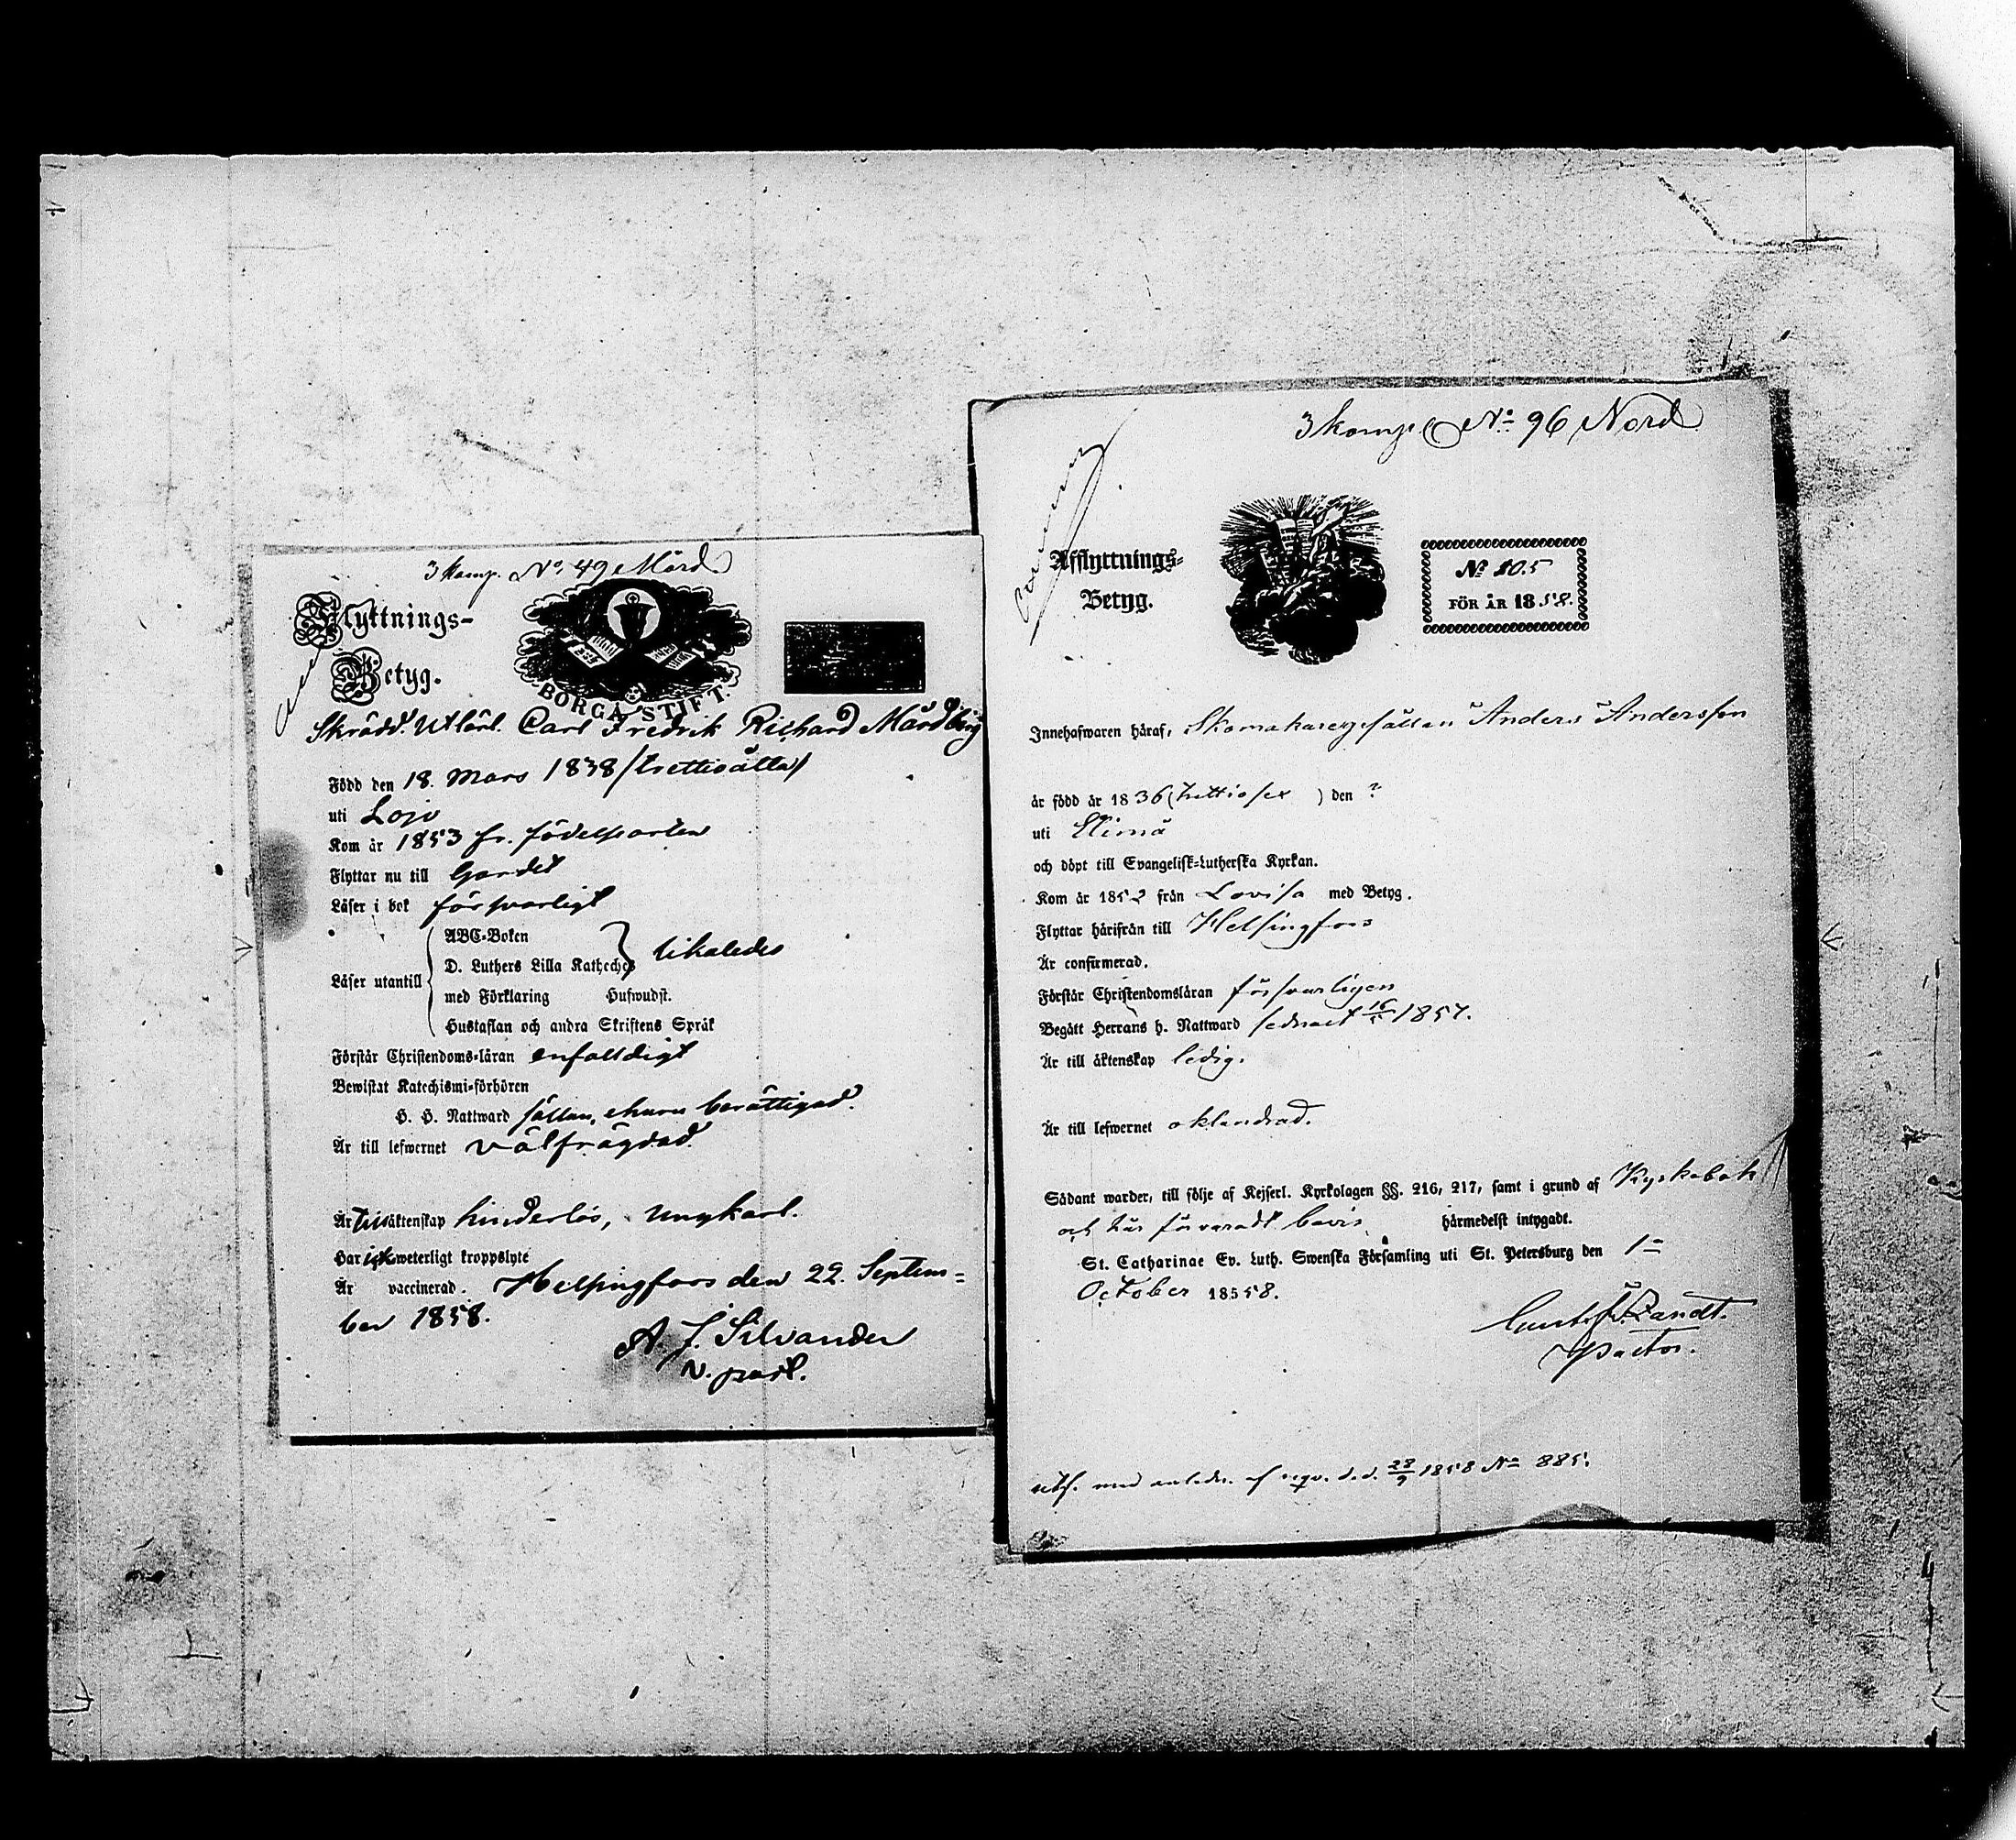 3 komp. No 49 Mård
Flyttnings-
Betyg.
BORGÅ STIFT.
Skrädd. Utlärl. Carl Fredrik Richard Mårdberg
Född den 18. Mars 1838 /trettioåtta/
uti Lojo
Kom år 1853 fr. födelseorten
Flyttar nu till Gardet
Läser i bok försvarligt
ABC-Boken
D. Luthers Lilla Kateches
likaledes
Läser utantill
med Förklaring Hufwudst.
Hustaflan och andra Skriftens Språk
Förstår Christendoms-läran enfalldigt
Bewistat Katechismi-förhören
H. H. Nattward sällan, ehuru berättigad.
Är till lefwernet välfrägdad.
Är till äktenskap hinderlös, ungkarl.
Har ick weterligt kroppslyte
Är vaccinerad. Helsingfors den 22. Septem=
ber 1858.
A. J. Silvander
v. past.
3 komp. No 96 Nord
Afflyttnings-
Betyg.
No 105
FÖR ÅR 1858.
Innehafwaren häraf, Skomakaregesällen Anders Andersson
är född år 1836 (trettiosex ) den ?
uti Elimä
och döpt till Evangelisk-Lutherska Kyrkan.
Kom år 1852 från Lovisa med Betyg.
Flyttar härifrån till Helsingfors
Är confirmerad.
Förstår Christendomsläran försvarligen
Begått Herrans h. Nattward sednast 1857.
Är till äktenskap ledig.
Är till lefwernet oklandrad.
Sådant warder, till följe af Kejserl. Kyrkolagen §§. 216, 217, samt i grund af Kyrkobok
och här förvaradt bevis härmedelst intygadt.
St. Catharinae Ev. Luth. Swenska Församling uti St. Petersburg den 1=
October 18558.
Zandt.
Pastor.
utf. med anledn. af reqv. d.d. 28/9 1858 No 885.